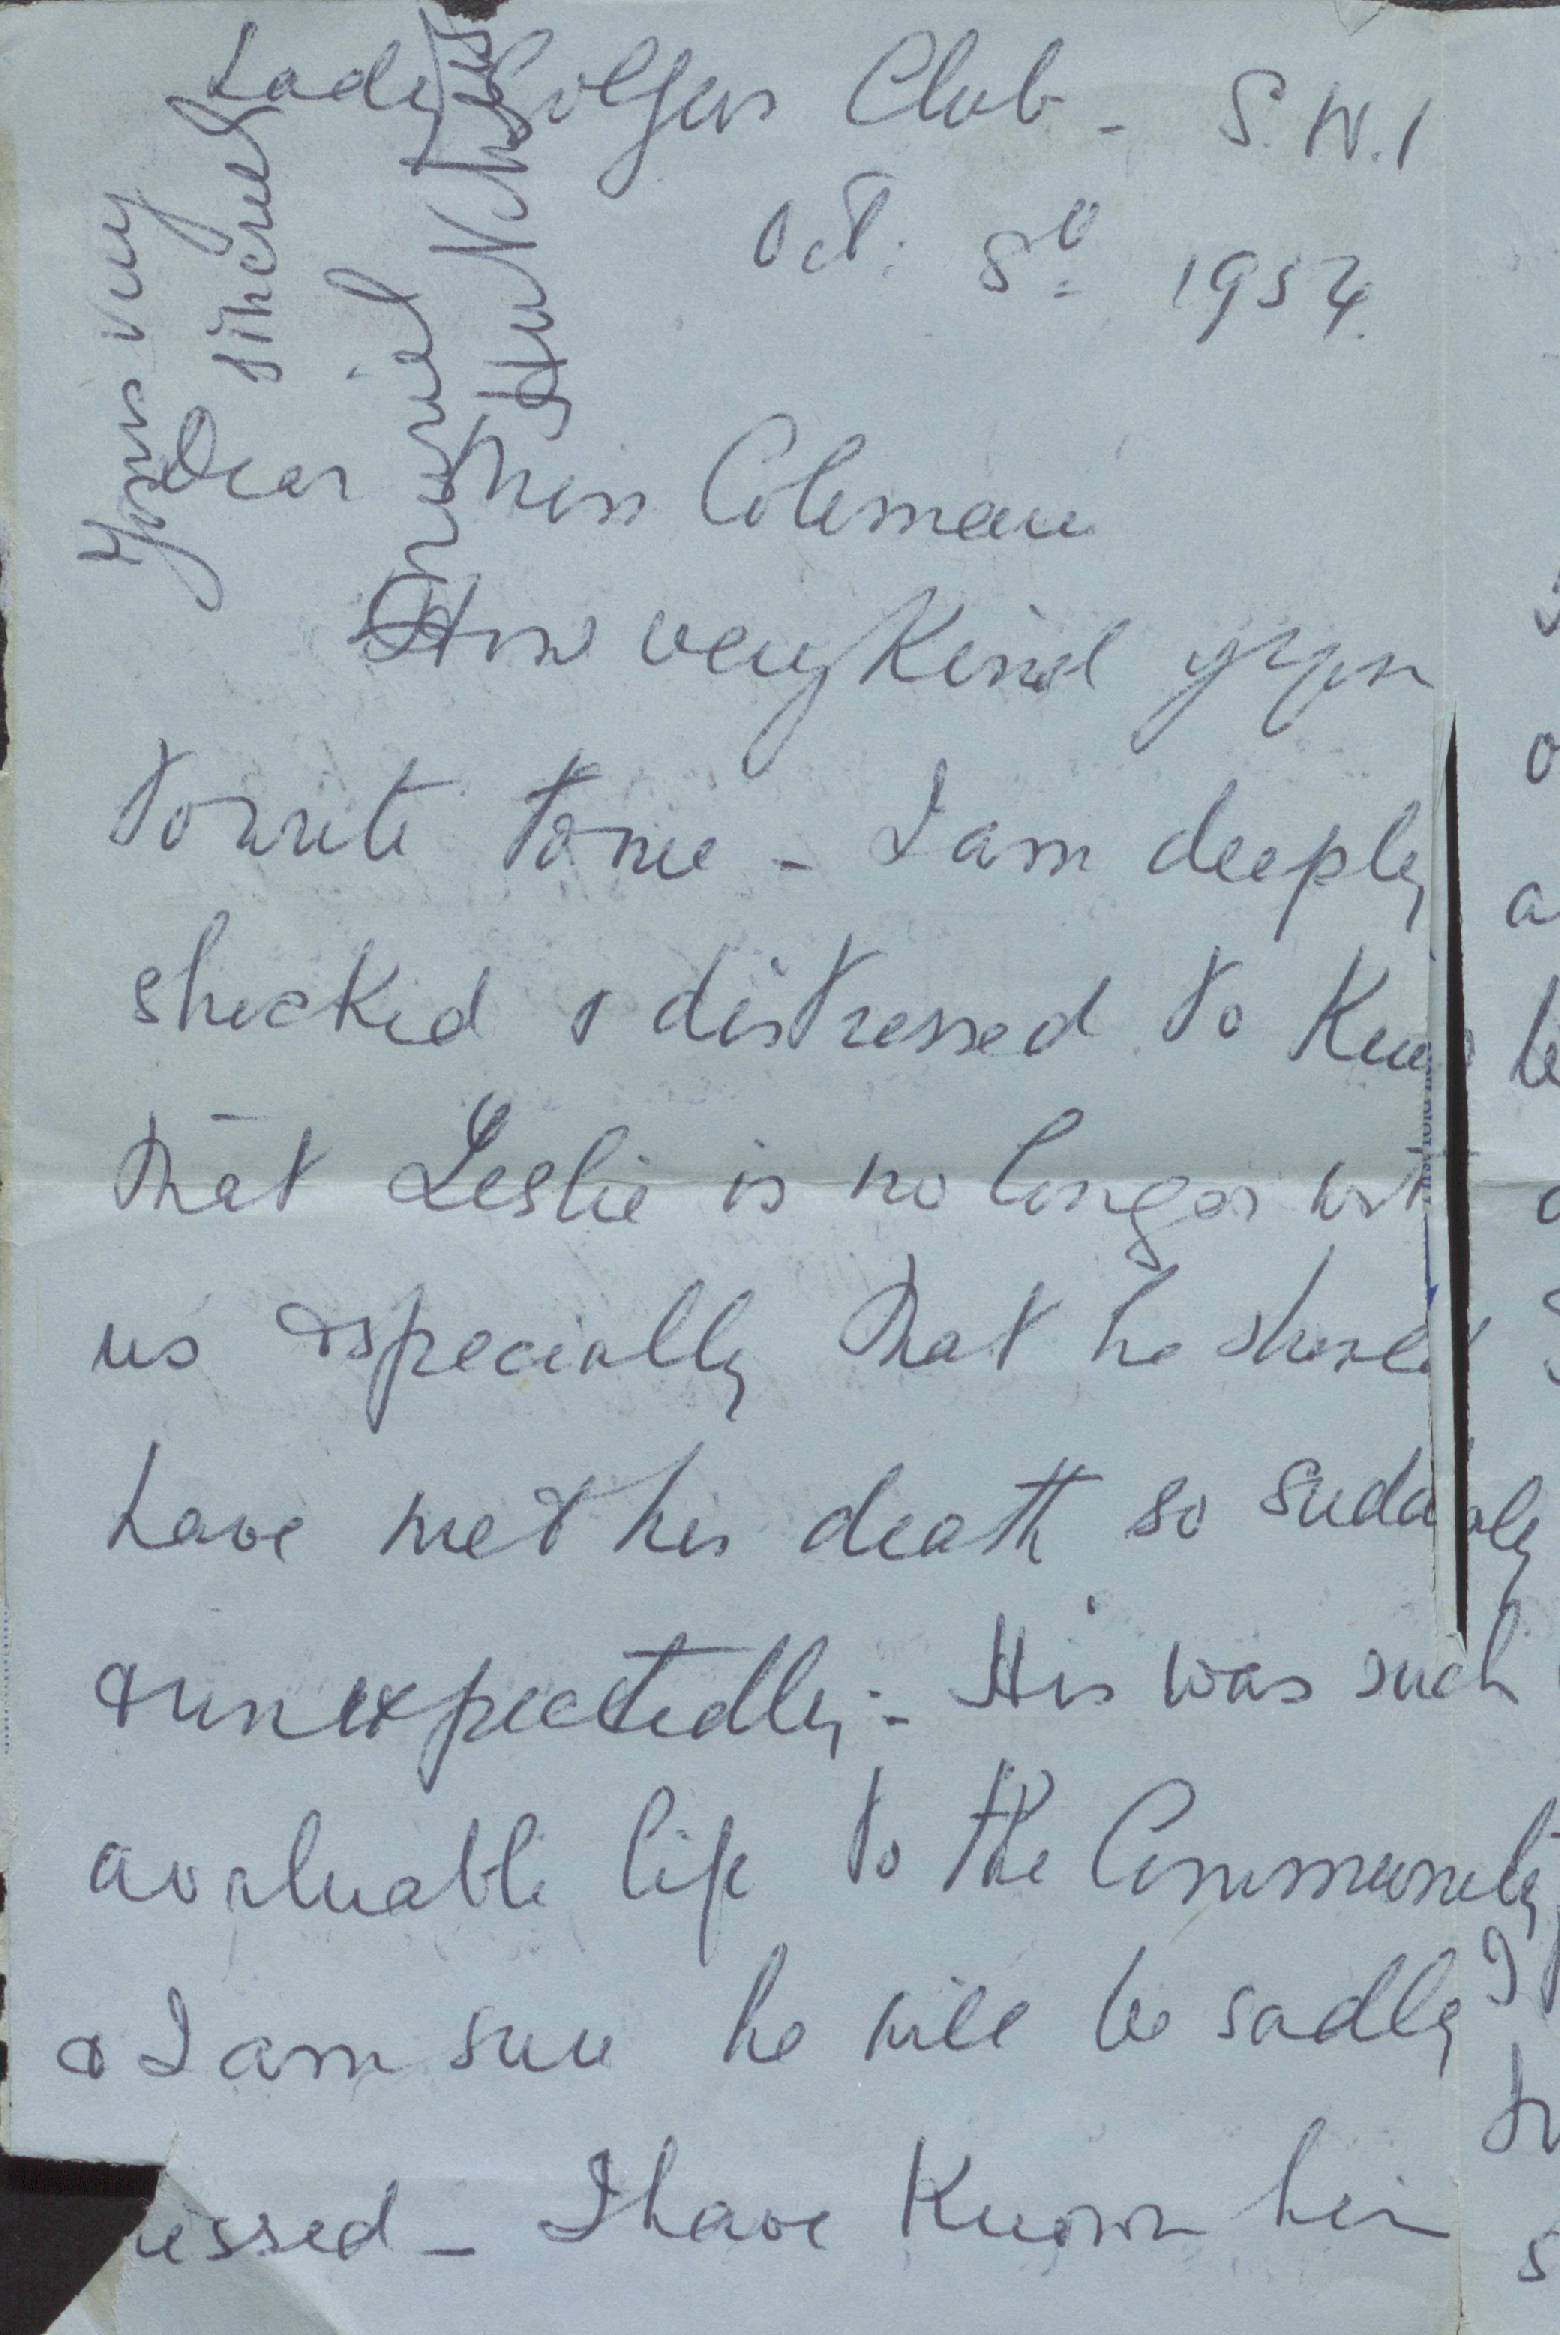 Lady Golfers Club - S.W.1
Oct. 8th 1954.
Dear Miss Coleman
How very kind of you
to write to me - I am deeply
shocked & distressed to know
that Leslie is no longer with
us especially that he should
have met his death so suddenly
& unexpectedly - His was such
a valuable life to the Community
& I am sure he will be sadly
missed - I have known him
Yours very
sincerely
Muriel